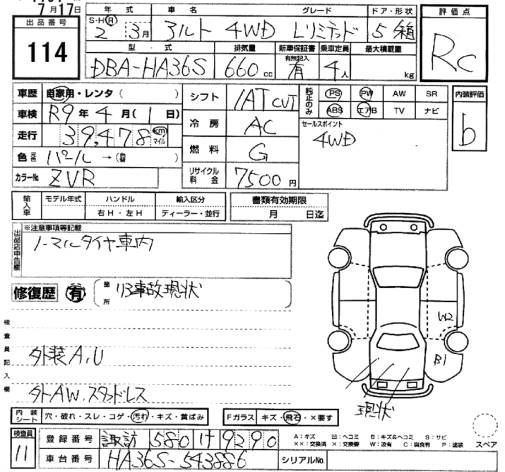 7月17日
出品番号
114
年式
車名
グレード
ドア・形状
S・H・R
2年 3月
アルト 4WD Lリミテッド
5 箱
型式
排気量
新車保証書
有無記入
乗車定員
最大積載量
DBA-HA36S
660cc
有
4人
kg
評価点
RC
車歴
自家用・レンタ( )
車検
R9年4月(1日)
走行
39,478
km
マイル
色
パール→(色替)
カラーNo.
ZVR
シフト
IAT CVT
冷房
AC
燃料
G
リサイクル料金
7500円
PS PW AW SR
ABS エアB TV ナビ
セールスポイント
4WD
内装評価
b
輸入車
モデル年式
ハンドル
輸入区分
右H・左H
ディーラー・並行
書類有効期限
月 日迄
※注意事項等記載
ノーマルタイヤ車内
修復歴
有
箇所
リヤ事故現状
検査員記入欄
外装A,U
外AW.スタッドレス
W2
B1
現状
内装シート
穴・破れ・スレ・コゲ・汚れ・キズ・黄ばみ
Fガラス
キズ・飛石・×要す
検査員
11
登録番号
諏訪 580 け 9290
車台番号
HA36S-543886
シリアルNo.
A:キズ U:ヘコミ B:キズ&ヘコミ S:サビ
××:交換済 ×:要交換 W:波有 C:腐食有 P:塗装
スペア